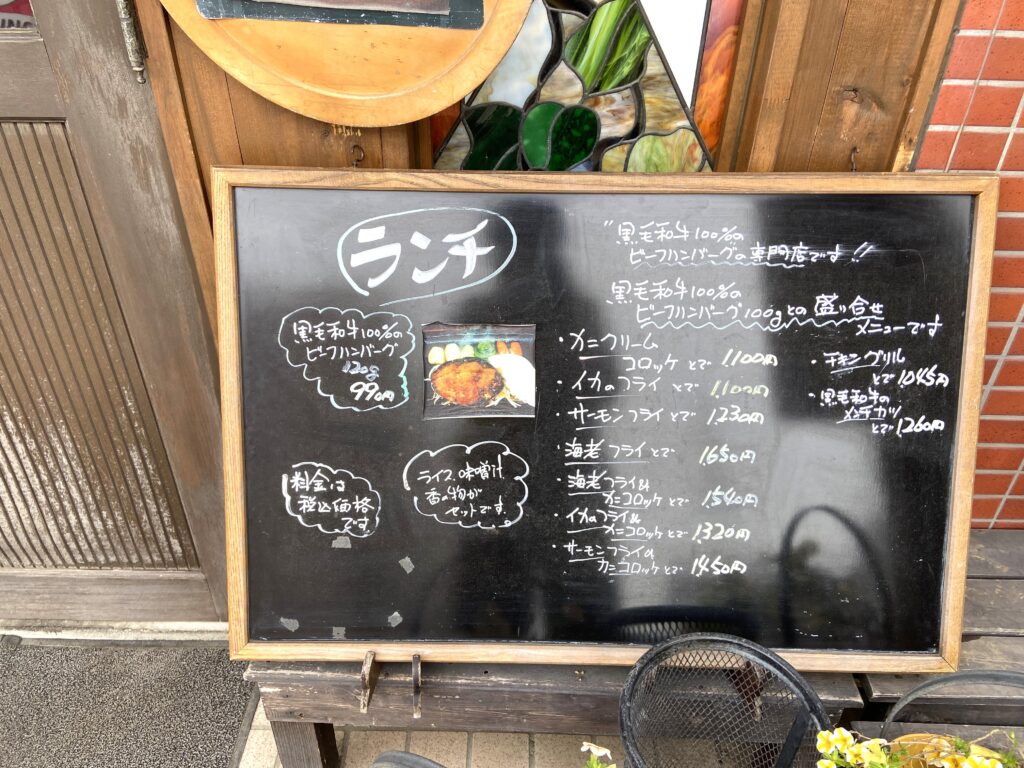 ランチ
黒毛和牛100%の
ビーフハンバーグ
120g
990円
料金は
税込価格
です。
ライス、味噌汁
香の物が
セットです。
"黒毛和牛100%の
ビーフハンバーグの専門店です!!
黒毛和牛100%の
ビーフハンバーグ100gとの盛り合せ
メニューです
・カニクリーム
コロッケとで 1,100円
・イカのフライとで 1,100円
・サーモンフライとで 1,230円
・海老フライとで 1,650円
・海老フライ&
カニコロッケとで 1,540円
・イカのフライ&
カニコロッケとで 1,320円
・サーモンフライ&
カニコロッケとで 1,450円
・チキングリル
とで 1045円
・黒毛和牛の
メンチカツ
とで 1,260円